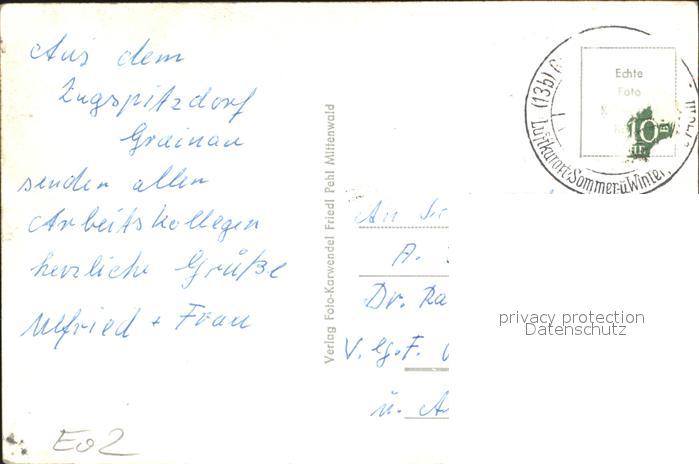 Aus dem
Zugspitzdorf
Grainau
senden allen
Arbeitskollegen
herzliche Grüße
Ulfried + Frau
E02
Verlag Foto-Karwendel Friedl Pehl Mittenwald
(13b)
Luftkurort-Sommer-u.Winter
Echte
Foto
10
An
A.
Dr. Ra
V. G. F.
u. A
privacy protection
Datenschutz